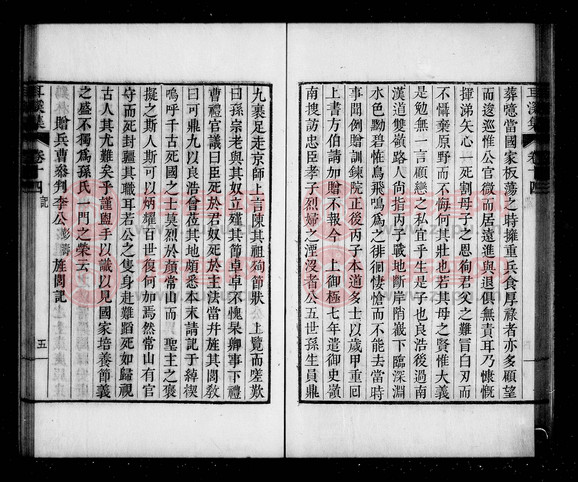 葬噫當國家板蕩之時擁重兵食厚祿者亦多顧望
而逡巡惟公官微而居遠進與退俱無責耳乃慷慨
揮涕矢心一死割母子之恩徇君父之難冒白刃而
不懾棄原野而不悔何其壯也若其母之賢惟大義
是勉無一言顧戀之私宜乎生是子也良浩後過南
漢道雙嶺路人尙指丙子戰地斷岸陗嶻下臨深淵
水色黝碧惟鳥飛鳴爲之徘徊悽愴而不能去當時
事聞例贈訓鍊院正後丙子本道多士以歲甲重回
上書方伯請加贈不報今 上御極七年遣御史嶺
南搜訪忠臣孝子烈婦之湮沒者公五世孫生員鼎
九裹足走京師上言陳其祖殉節狀 上覽而嗟歎
曰孫宗老與其奴立殣其節卓卓不愧杲卿事下禮
曹禮官議曰臣死於君奴死於主法當幷旌其閭敎
曰可鼎九以良浩曾莅其地頗悉本末請記于綽楔
嗚呼千古死國之士莫烈於顏常山而 聖主之褒
擬之斯人斯可以炳燿百世復何加焉然常山有官
守而死封疆其職耳若公之隻身赴難蹈死如歸視
古人其尤難矣乎謹盥手以識以見國家培養節義
之盛不獨爲孫氏一門之榮云
贈兵曹叅判李公旌閭記
耳溪集
卷十四
記
五